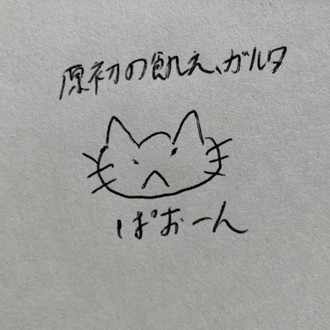 原初の飢え、ガルタ
ぱおーん